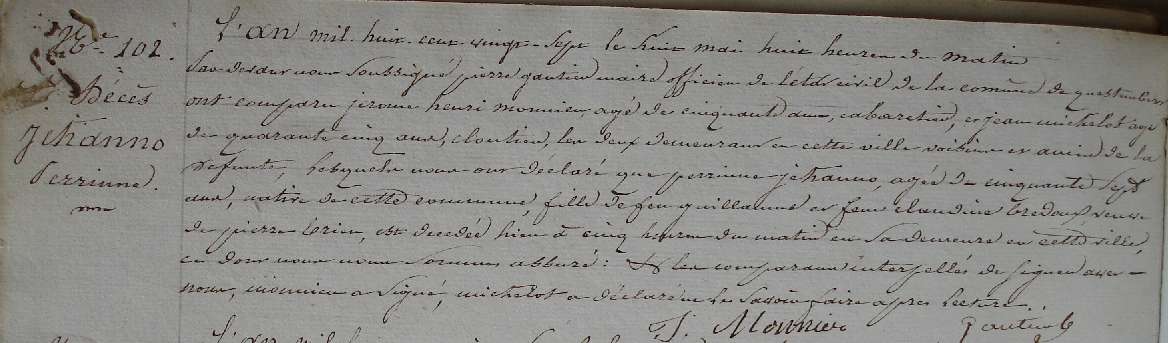 N.e 102.
Décès
Jehanno
Perrinne.
L'an mil huit cent vingt-sept le huit mai huit heures du matin
par devant nous soussigné pierre gautier maire officier de l'état civil de la comune de questembert
ont comparu jerome henri monnier, agé de cinquante ans, cabaretier, et jean michelot agé
de quarante cinq ans, cloutier, les deux demeurans en cette ville voisins et amis de la
défunte, lesquels nous ont déclaré que perrinne jehanno, agée de cinquante sept
ans, native de cette commune, fille de feu guillaume et feue claudine tredoux veuve
de pierre brien, est decedée hier à cinq heures du matin en sa demeure en cette ville,
ce dont nous nous sommes assuré: les comparans interpellés de signer avec-
nous, monnier a signé, michelot a déclaré ne le savoir faire apres lecture.
J. Monnier
Gautier
L'an mil